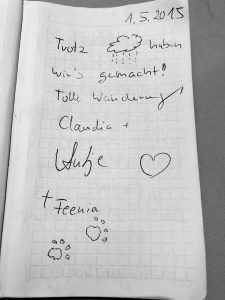 1.5.2015
Trotz haben
wir's gemacht!
Tolle Wanderung!
Claudia +
Antje
+ Feenia